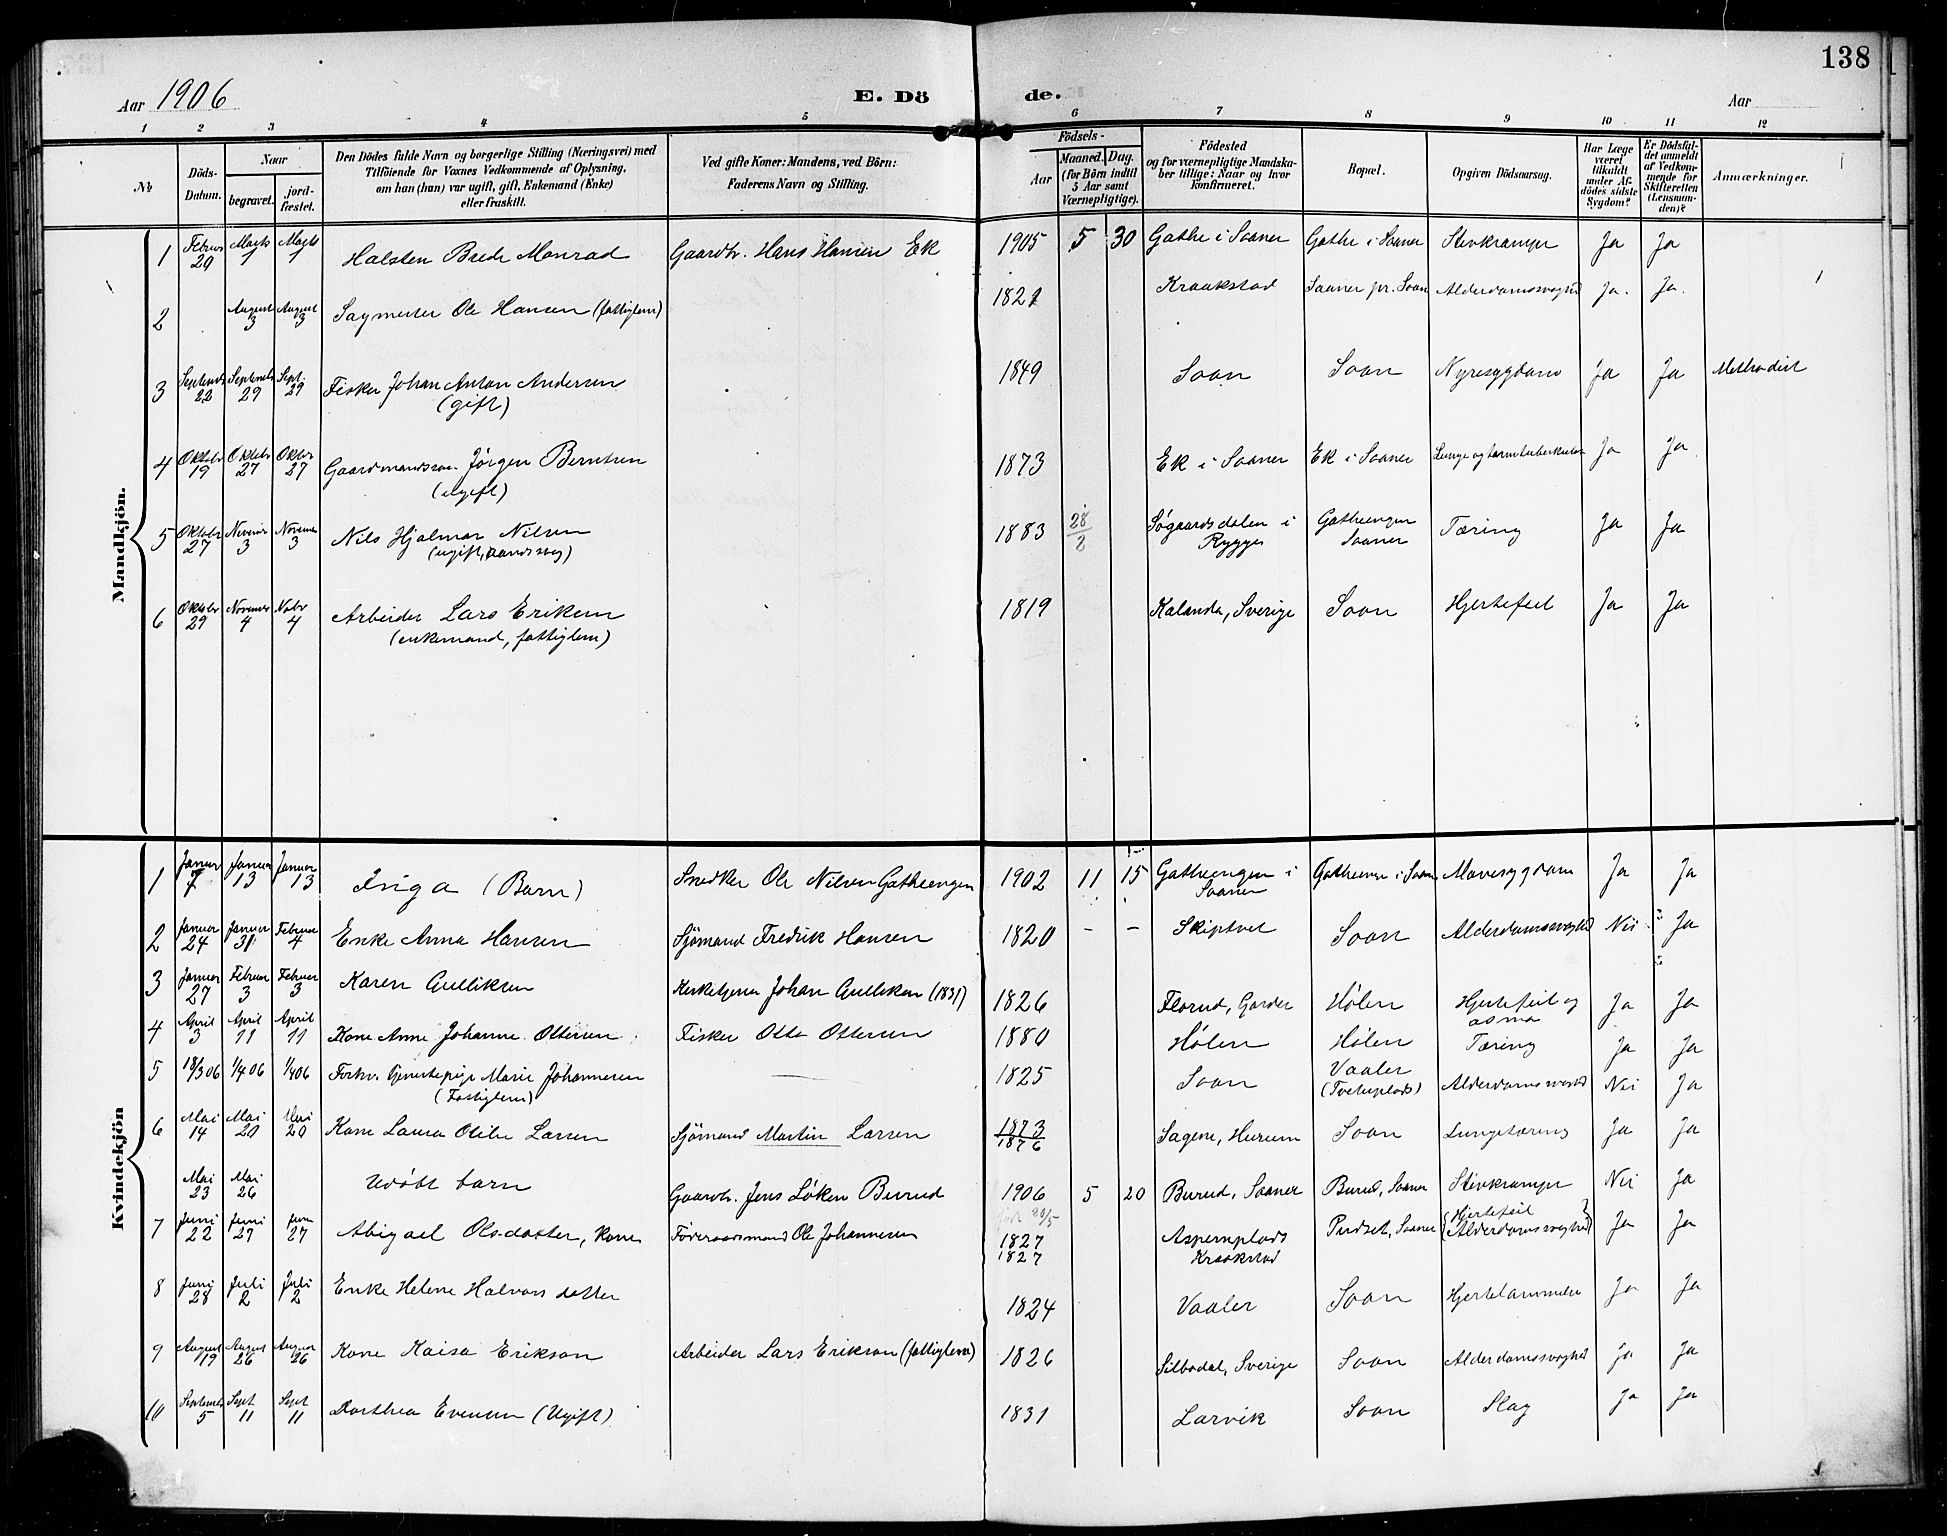 138
Aar 1906
E. Dö
de.
Aar
1 2 3 4 5 6 7 8 9 10 11 12
No
Döds-Datum.
Naar
begravet.
jord-fæstet.
Den Dödes fulde Navn og borgerlige Stilling (Næringsvei) med
Tilföiende for Voxnes Vedkommende af Oplysning,
om han (hun) var ugift, gift, Enkemand (Enke)
eller fraskilt.
Ved gifte Koner: Mandens, ved Börn:
Faderens Navn og Stilling.
Födsels-
Aar
Maaned. Dag.
(for Börn indtil
5 Aar samt
Værnepligtige).
Födested
og for værnepligtige Mandska-
ber tillige: Naar og hvor
konfirmeret.
Bopæl.
Opgiven Dödsaarsag.
Har Læge
været
tilkaldt
under Af-
dödes sidste
Sygdom?
Er Dödsfal-
det anmeldt
af Vedkom-
mende for
Skifteretten
(Lensman-
den)?
Anmærkninger.
Mandkjön.
1 Februar 20 Marts 7 Marts 7 Halsten Brede Monrad Gaardbr. Hans Hansen Ek 1905 5 30 Galhe i Saaner Galhe i Saaner Stivkrampe Ja Ja
2 August 3 August 3 Sagmester Ole Hansen (fattiglem) 1821 Kraakstad Saaner pr. Soon Alderdomssvaghed Ja. Ja.
3 Septemb 22 Septemb 29 Sept. 29 Fisker Johan Anton Andersen 1849 Soon Soon Nyresygdom Ja Ja Methodist
(gift)
4 Oktobr 19 Oktobr 27 Oktbr 27 Gaardmandssøn Jørgen Berntsen 1873 Ek i Saaner Ek i Saaner Lunge og tarmtuberkulose Ja Ja
(ugift)
5 Oktobr 27 November 3 November 3 Nils Hjalmar Nilsen 1883 28/2 Søgaardsdalen i Galheengen Tæring Ja Ja
(ugift, aandssvag) Rygge Saaner
6 Oktobr 29 November 4 Nobr 4 Arbeider Lars Eriksen 1819 Kalanda, Sverige Soon Hjertefeil Ja Ja
(enkemand, fattiglem)
Kvindekjön
1 Januar 7 Januar 13 Januar 13 Inga (Barn) Snedker Ole Nilsen Galheengen 1902 11 15 Galheengen i Galheengen i Saaner Mavesygdom Ja Ja
Saaner
2 Januar 24 Januar 31 Februar 4 Enke Anna Hansen Sjömand Fredrik Hansen 1820 - - Skiptvet Soon Alderdomssvaghed Nei Ja
3 Januar 27 Februar 3 Februar 3 Karen Gulliksen Kirketjener Johan Gulliksen (1831) 1826 Florud, Garder Hølen Hjertefeil og Ja Ja
asma
4 April 3 April 11 April 11 Kone Anne Johanne Ottersen Fisker Otto Ottersen 1880 Hølen Hølen Tæring Ja Ja
5 18/3 06 1/4 06 1/4 06 Forhv. Tjenestepige Marie Johannesen 1825 Soon Vaaler Alderdomssvaghed Nei Ja
(Fattiglem) (Tveterplads)
6 Mai 14 Mai 20 Mai 20 Kone Laura Otilie Larsen Sjömand Martin Larsen 1873 Sagene, Hurum Soon Lungetæring Ja Ja
1876
Mai 23 Mai 26 Udöbt barn Gaardbr. Jens Löken Burud 1906 5 20 Burud, Saaner Burud, Saaner Stivkrampe Nei Ja
født 20/5
7 Juni 22 Juni 27 Juni 27 Abigael Olsdatter, kone Föderaadsmand Ole Johannesen 1827 Aspernplads Pudset, Saaner {Hjertefeil Alderdomssvaghed} Ja Ja
1827 Kraakstad
8 Juni 28 Juli 2 Juli 2 Enke Helene Halvorsdatter 1824 Vaaler Soon Hjertelammelse Ja Ja
9 August 19 August 26 August 26 Kone Kaisa Erikson Arbeider Lars Erikson (fattiglem) 1826 Silbodal, Sverige Soon Alderdomssvaghed Ja Ja
10 Septemb 5 Sept 11 Sept 11 Dorthea Evensen (Ugift) 1831 Larvik Soon Slag Ja Ja